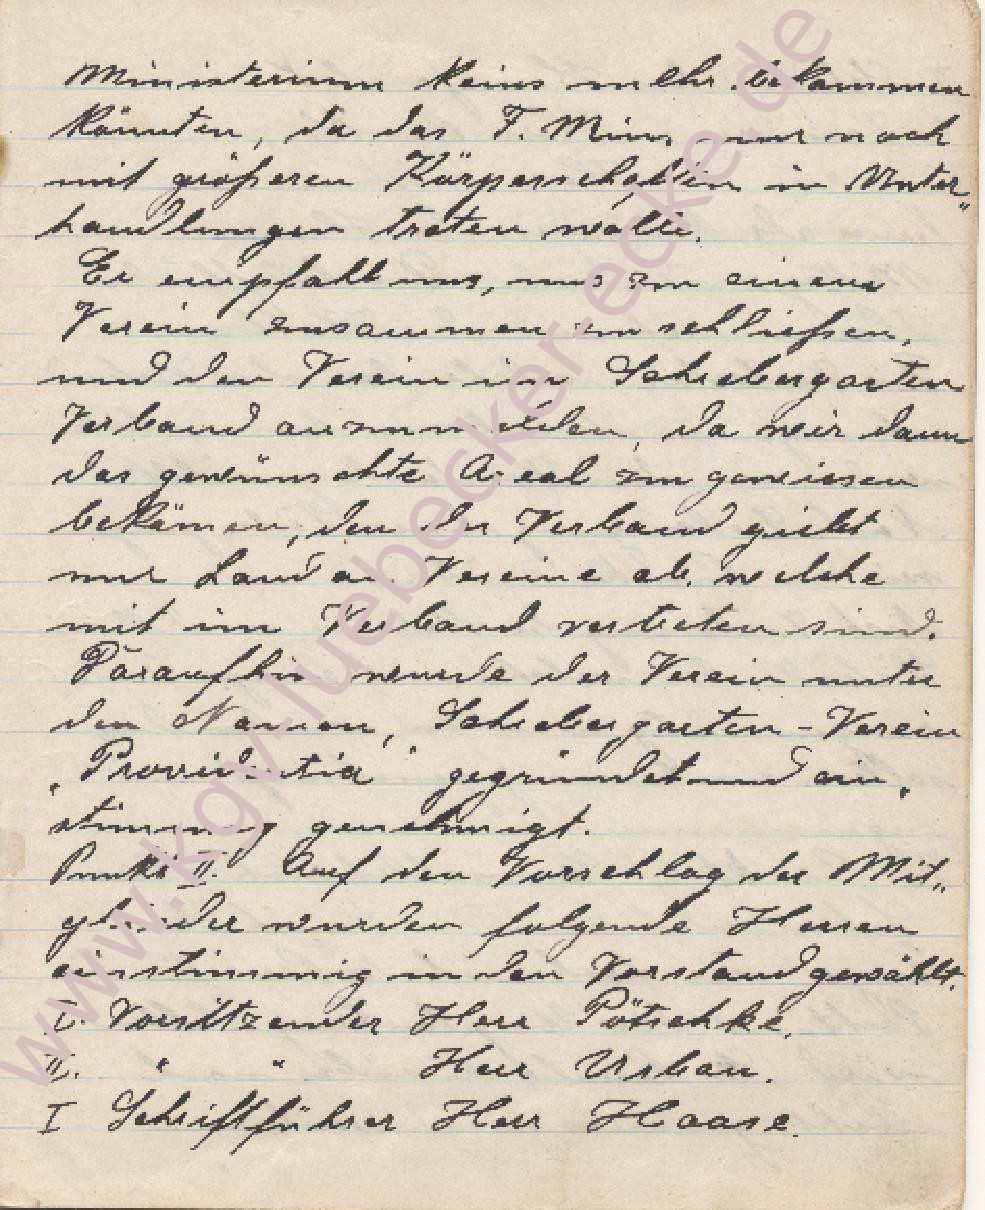 Ministerium keins mehr bekommen
könnten, da das F. Min. nur noch
mit größeren Körperschaften in Unter„
handlungen treten wolle.
Er empfahl uns, uns zu einem
Verein zusammen zu schließen,
und den Verein im Schrebergarten
Verband anzumelden, da wir dann
das gewünschte Areal zugewiesen
bekämen, den der Verband giebt
nur Land an Vereine ab, welche
mit im Verband vertreten sind.
Daraufhin wurde der Verein unter
den Namen, Schrebergarten-Verein
„Providentia" gegründet und ein„
stimmig genehmigt.
Punkt II. Auf den Vorschlag der Mit„
glieder wurden folgende Herren
einstimmig in den Vorstand gewählt.
I. Vorsitzender Herr Pötschke.
II. " " Herr Urban.
I Schriftführer Herr Haase.
www.kgv-luebecker-ecke.de